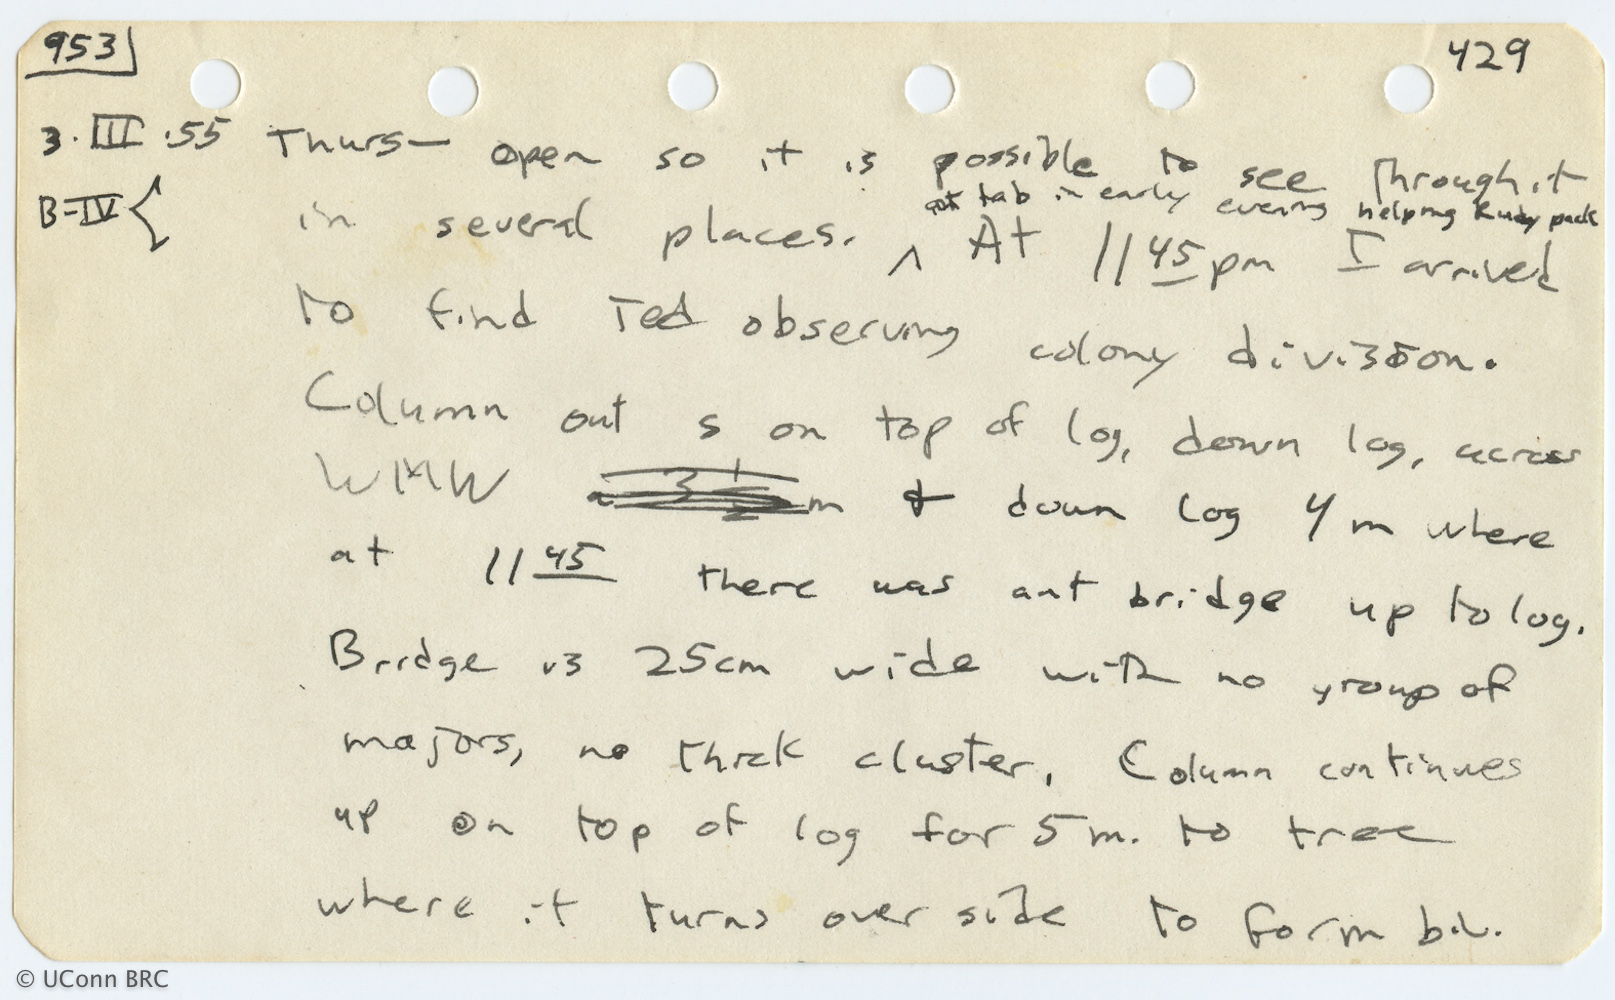 953 429
3.III.55 Thurs— open so it is possible to see through it
at lab in early evening helping Rudy pack
B-IV in several places. ^ At 11 45 pm I arrived
to find Ted observing colony division.
Column out S on top of log, down log, across
WMW m & down log 4 m where
at 11 45 there was ant bridge up to log.
Bridge is 25cm wide with no group of
majors, no thick cluster. Column continues
up on top of log for 5 m. to tree
where it turns over side to form biv.
© UConn BRC